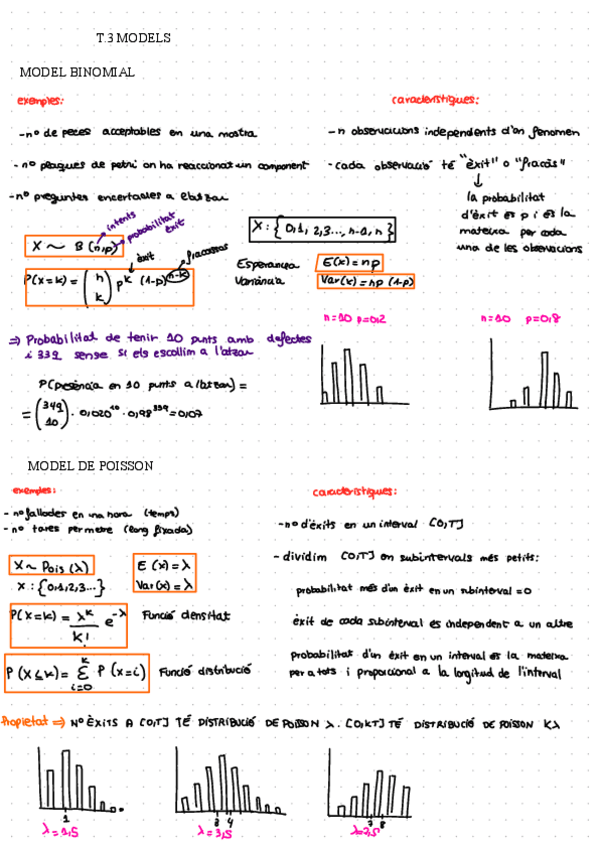 T.3 MODELS
MODEL BINOMIAL
exemples:
-nº de peces acceptables en una mostra
-nº plaques de petri on ha reaccionat un component
-nº preguntes encertades a l'atzar
característiques:
-n observacions independents d'un fenomen
-cada observació té "èxit" o "fracàs"
↓
la probabilitat
d'èxit es p i es la
mateixa per cada
una de les observacions
intents
probabilitat
èxit
X ~ B (n,p)
X : {0,1, 2,3..., n-1, n}
èxit
fracassos
P(X=k) = (n k) p^k (1-p)^(n-k)
Esperança E(x) = np
Variància Var(x) = np (1-p)
n=10 p=0,2
n=10 p=0,8
⇒ Probabilitat de tenir 10 punts amb defectes
i 339 sense si els escollim a l'atzar
P(presència en 10 punts a l'atzar) =
= (349 10) · 0,020^10 · 0,98^339 = 0,07
MODEL DE POISSON
exemples:
- nº fallades en una hora (temps)
- nº tares per metre (long fixada)
X ~ Pois (λ)
X : {0,1,2,3...}
E (x) = λ
Var(x) = λ
P(X=k) = λ^k/k! e^-λ Funció densitat
P (X≤k) = Σ k i=0 P (X=i) Funció distribució
característiques:
-nº d'èxits en un interval [0,T]
- dividim [0,T] en subintervals més petits:
probabilitat més d'un èxit en un subinterval = 0
èxit de cada subinterval es independent a un altre
probabilitat d'un èxit en un interval es la mateixa
per a tots i proporcional a la longitud de l'interval
Propietat ⇒ Nº ÈXITS A [0,T] TÉ DISTRIBUCIÓ DE POISSON λ. [0,KT] TÉ DISTRIBUCIÓ DE POISSON Kλ
1
λ = 1,5
3 4
λ = 3,5
7 8